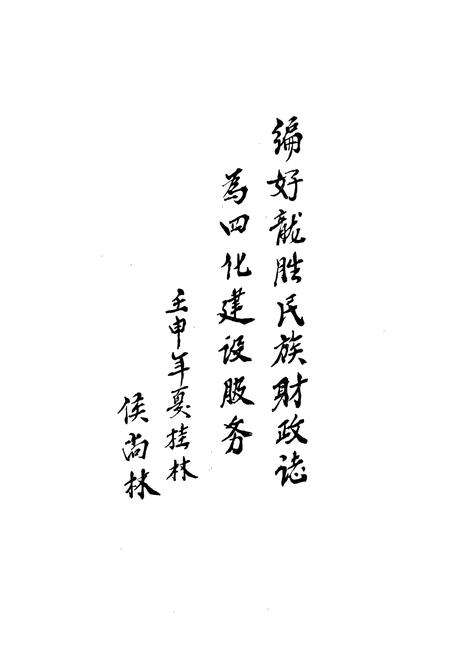 编好龍胜民族财政誌
為四化建设服务
壬申年夏桂林
侯尚林